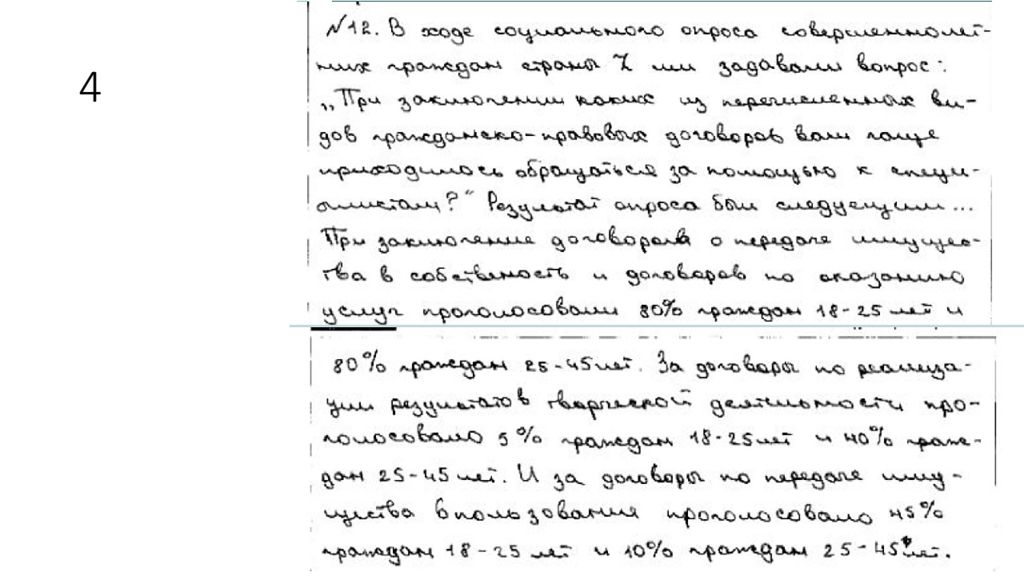 4
№12. В ходе социального опроса совершеннолет-
них граждан страны Z им задавали вопрос:
„При заключении каких из перечисленных ви-
дов гражданско-правовых договоров вам чаще
приходилось обращаться за помощью к специ-
алистам?" Результат опроса был следующим...
При заключение договоров о передаче имущес-
тва в собственость и договоров по оказанию
услуг проголосовали 80% граждан 18-25 лет и
80% граждан 25-45 лет. За договоры по реализа-
ции результатов творческой деятельности про-
голосовало 5% граждан 18-25 лет и 40% граж-
дан 25-45 лет. И за договоры по передаче иму-
щества в пользование проголосовало 45%
граждан 18-25 лет и 10% граждан 25-45 лет.